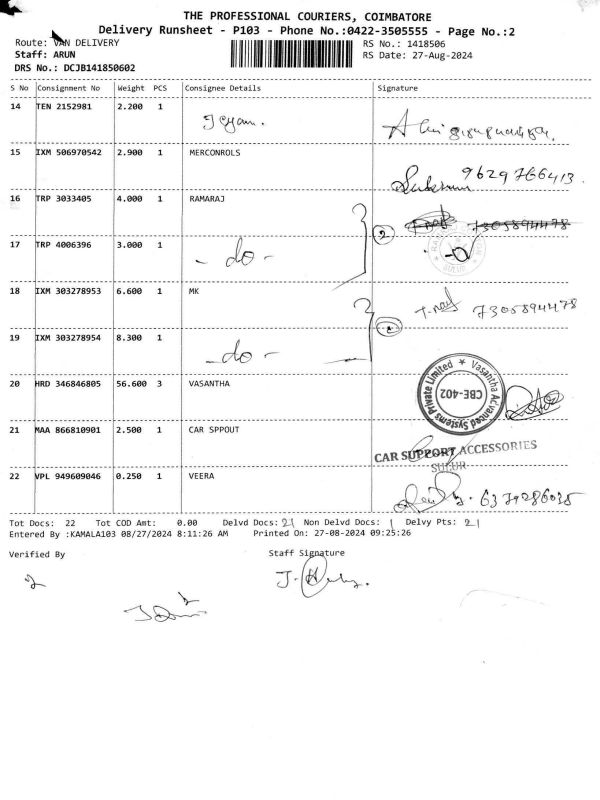 THE PROFESSIONAL COURIERS, COIMBATORE
Delivery Runsheet - P103 - Phone No.:0422-3505555 - Page No.:2
Route: VAN DELIVERY
RS No.: 1418506
Staff: ARUN
RS Date: 27-Aug-2024
DRS No.: DCJB141850602
S No Consignment No Weight PCS Consignee Details Signature
14 TEN 2152981 2.200 1
15 IXM 506970542 2.900 1 MERCONROLS
9629766413
16 TRP 3033405 4.000 1 RAMARAJ
2 7305894478
17 TRP 4006396 3.000 1
- do -
18 IXM 303278953 6.600 1 MK
7305894478
19 IXM 303278954 8.300 1
- do -
20 HRD 346846805 56.600 3 VASANTHA
Vasantha Advanced Systems Private Limited
CBE-402
21 MAA 866810901 2.500 1 CAR SPPOUT
CAR SUPPORT ACCESSORIES
SULUR
22 VPL 949609046 0.250 1 VEERA
6379286035
Tot Docs: 22 Tot COD Amt: 0.00 Delvd Docs: 21 Non Delvd Docs: 1 Delvy Pts: 21
Entered By :KAMALA103 08/27/2024 8:11:26 AM Printed On: 27-08-2024 09:25:26
Verified By Staff Signature